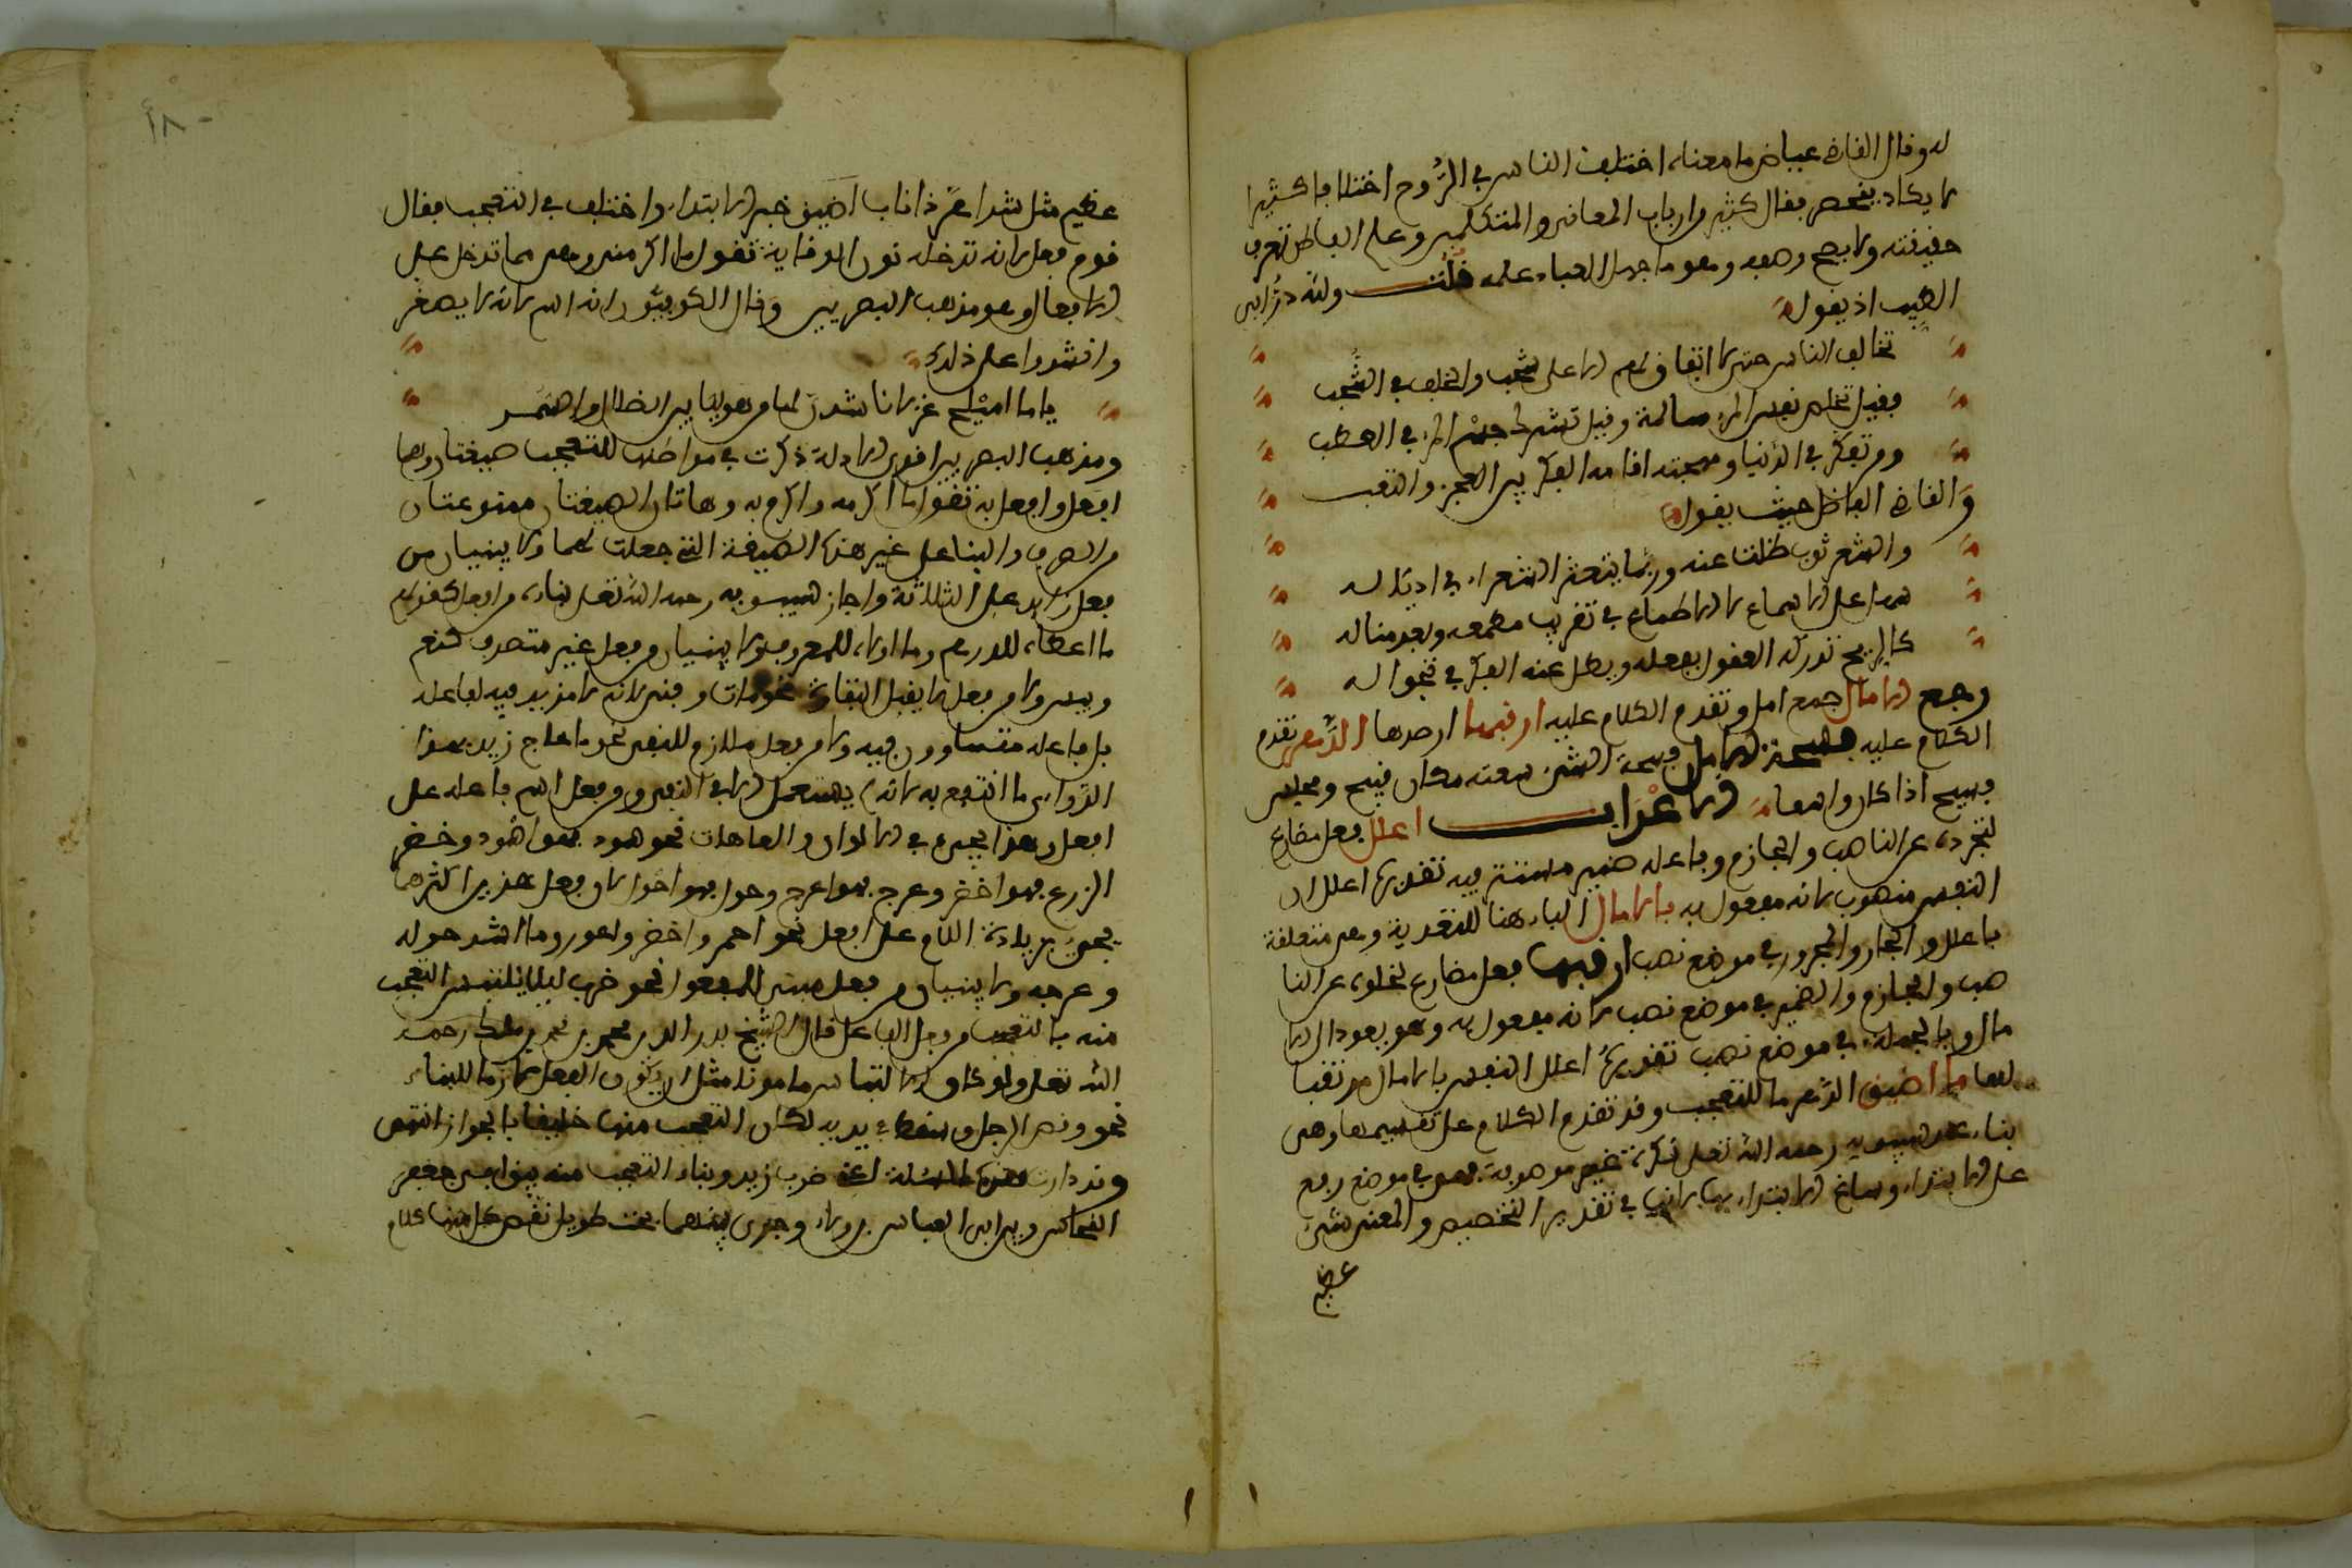 له وقال القاضي عياض ما معناه اختلف الناس في الرُّوح اختلافا كثيرا
لا يكاد ينحصر فقال كثير من ارباب المعاني والمتكلمين وعلم الباطن تعرف
حقيقته ولا يصح وصفه وهو ما جهل العباد علمه قلت ولله درُّ ابي
الطيب اذ يقول
تخالف الناس حتى لا اتفاق لهم الا على شجب والخلف في الشجب
فقيل تخلص نفس المرء سالمة وقيل تشرك جسم المرء في العطب
ومن تفكر في الدُّنيا ومهجته اقامه الفكر بين العجز والتعب
والقاضي الفاضل حيث يقول
والشعر ثوب ظلت عنه وربما يتعثر الشعراء في اذياله
على الاسماع لا الاطماع في تقريب مطمعه وبعد مناله
كالريح تدركه العقول بفعله ويظل عنه الفكر في تجواله
رجع الامال جمع امل وتقدم الكلام عليه ارقبها ارصدها الدَّهر تقدم
الكلام عليه فسحة الامل فسحة الشيء سعته مكان فسيح ومجلس
فسيح اذا كان واسعا الاعْرَاب اعلل فعل مضارع
لتجرده عن الناصب والجازم وفاعله ضمير مستتر فيه تقديره اعلل انا
النفس منصوب لانه مفعول به بالامال الباء هنا للتعدية وهي متعلقة
باعلل والجار والمجرور في موضع نصب ارقبها فعل مضارع لخلوه عن النا
صب والجازم والضمير في موضع نصب لانه مفعول به وهو يعود الى الا
مال والجملة في موضع نصب تقديره اعلل النفس بالامال مرتقبا
لها ما اضيق الدهر ما للتعجب وقد تقدم الكلام على تقسيمها وهي
بناء عند سيبويه رحمه الله تعلى نكرة غير موصوفة فهي في موضع رفع
على الابتداء وساغ الابتداء بها لانها في تقدير التخصيص والمعنى شيء
عظيم
عظيم مثل شر اهرّ ذا ناب اضيق خبر الابتداء واختلف في التعجب فقال
قوم فعل لانه تدخله نون الوقاية تقول ما اكرمني وهي مما تدخل على
الافعال وهو مذهب البصريين وقال الكوفيُّون انه اسم لانه لا يصغر
وانشدوا على ذلك
ياما اميلح غزلانا شدنّ لنا من هوليّا بين الضال والسَّمر
ومذهب البصريين اقوى الادلة ذكرت في مواطنها للتعجب صيغتان وهما
افعل وافعل به تقول ما اكرمه واكرم به وهاتان الصيغتان ممنوعتان
من الصرف والبناء على غير هذه الصيغة التي جعلت لهما ولا يبنيان من
فعل زايد على الثلاثة واجاز سيبويه رحمه الله تعلى بناءه من افعل كقولهم
ما اعطاه للدرهم وما اولاه للمعروف ولا يبنيان من فعل غير متصرف كنعم
وبيس ولا من فعل لا يقبل التفاوت نحو مات وفني لانه لا مزيد فيه لفاعله
بل فاعله متساوون فيه ولا من فعل ملازم للنفي نحو ما عاج زيد بهذا
الدَّواء اي ما انتفع به لانه لا يستعمل الا في النفي ولا من فعل اسم فاعله على
افعل وهذا يجيء في الالوان والعاهات نحو سود فهو اسود وخضر
الزرع فهو اخضر وعرج فهو اعرج وحول فهو احول لان فعل هذين اكثرهما
يجيء بزيادة اللام على افعل نحو احمر واخضر واعور وما اشد حوله
وعرجه ولا يبنيان من فعل مبني للمفعول نحو ضرب ليلا يلتبس التعجب
منه بالتعجب من فعل الفاعل قال الشيخ بدر الدين محمد بن محمد بن ملك رحمه
الله تعلى ولو كان الالتباس مامونا مثل ان يكون الفعل لازما للبناء
نحو وقص الرجل وسقط في يديه لكان التعجب منها خليقا بالجواز انتهى
وقد دارت هذه المسئلة اعني ضرب زيد وبناء التعجب منه بين ابي جعفر
النحاس وبين ابي العباس بن ولاد وجرى بينهما بحث طويل نقض كل منهما كلام